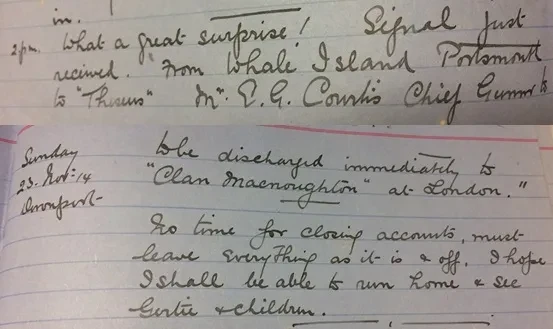 in.
2 pm. What a great surprise! Signal just
received. "From Whale Island Portsmouth
to "Theseus" Mr. E. G. Courtis Chief Gunner to
to be discharged immediately to
"Clan Macnoughton" at London."
Sunday
23. Nov: 14
Devonport
No time for closing accounts, must
leave everything as it is & off. I hope
I shall be able to run home & see
Gertie & children.